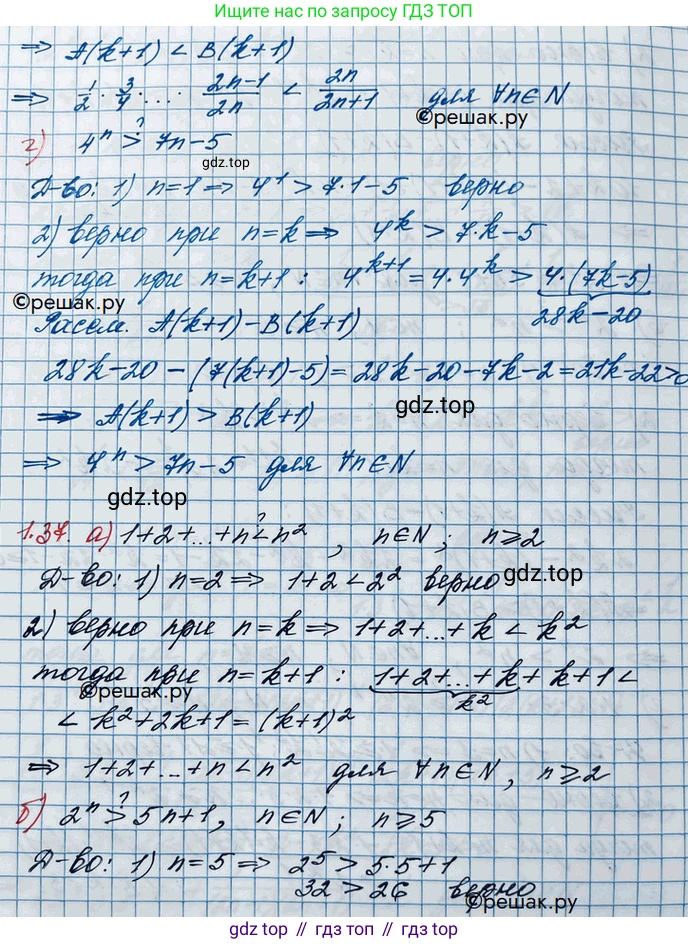 Ищите нас по запросу ГДЗ ТОП
⇒ A(k+1) < B(k+1)
⇒ 1/2 · 3/4 · ... · (2n-1)/2n < 2n/(2n+1) для ∀n∈N
©решак.ру
г) 4^n >? 7n-5
gdz.top
Д-во: 1) n=1 ⇒ 4^1 > 7·1-5 верно
2) верно при n=k ⇒ 4^k > 7·k-5
тогда при n=k+1 : 4^(k+1) = 4·4^k > 4·(7k-5)
©решак.ру
28k-20
Рассм. A(k+1)-B(k+1)
28k-20 - (7(k+1)-5) = 28k-20-7k-2 = 21k-22>0
⇒ A(k+1) > B(k+1)
gdz.top
⇒ 4^n > 7n-5 для ∀n∈N
gdz.top
1.37 а) 1+2+...+n <? n^2 , n∈N ; n⩾2
Д-во: 1) n=2 ⇒ 1+2 < 2^2 верно
gdz.top
2) верно при n=k ⇒ 1+2+...+k < k^2
тогда при n=k+1 : 1+2+...+k + k+1 <
©решак.ру
k^2
< k^2+2k+1 = (k+1)^2
⇒ 1+2+...+n < n^2 для ∀n∈N, n⩾2
б) 2^n >? 5n+1, n∈N ; n⩾5
Д-во: 1) n=5 ⇒ 2^5 > 5·5+1
32 > 26 верно
©решак.ру
gdz.top // гдз.топ // gdz.top